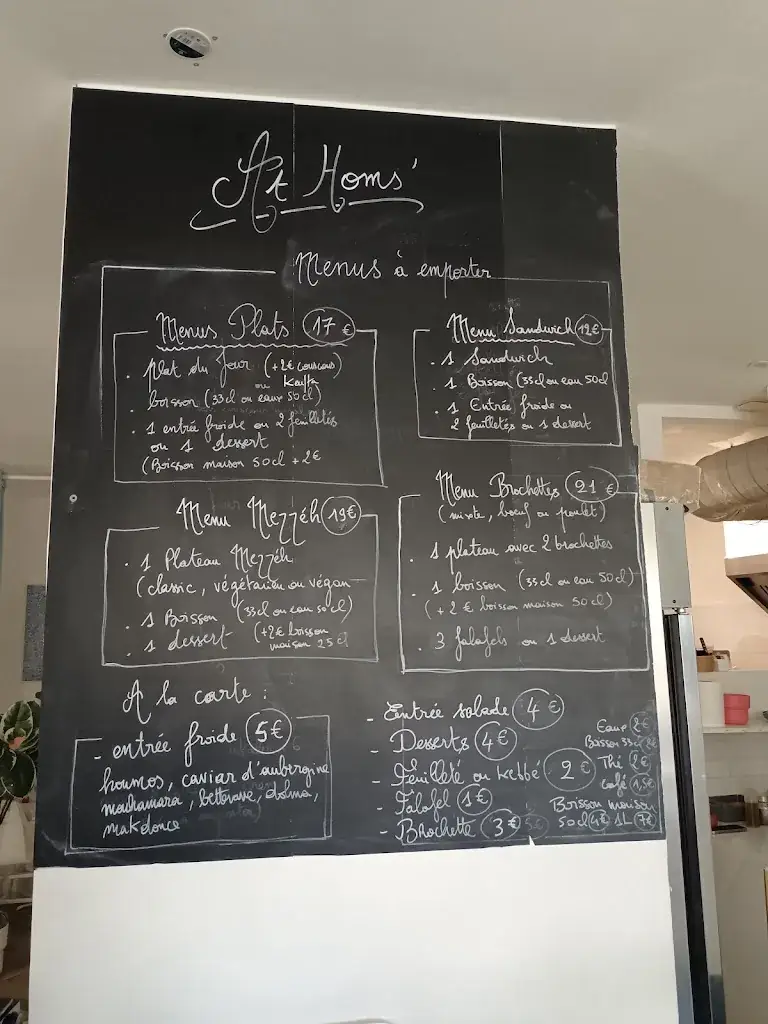 At Homs'
Menus à emporter
Menus Plats 17€
. plat du jour (+2€ couscous)
ou Kafta
. boisson (33cl ou eau 50cl)
. 1 entrée froide ou 2 feuilletés
ou 1 dessert
(Boisson maison 50cl +2€
Menu Sandwich 12€
. 1 Sandwich
. 1 Boisson (33cl ou eau 50cl
. 1 Entrée froide ou
2 feuilletés ou 1 dessert
Menu Mezzéh 19€
. 1 Plateau Mezzéh
(classic, végétarien ou végan
. 1 Boisson (33cl ou eau 50cl)
. 1 dessert (+2€ boisson
maison 25cl
Menu Brochettes 21€
(mixte, bœuf ou poulet)
. 1 plateau avec 2 brochettes
. 1 boisson (33cl ou eau 50cl)
(+2€ boisson maison 50cl)
. 3 falafels ou 1 dessert
A la carte :
- entrée froide 5€
houmos, caviar d'aubergine
mouhamara, betterave, dolma,
makdouce
- Entrée salade 4€
- Desserts 4€
- Feuilleté ou kebbé 2€
- Falafel 1€
- Brochette 3€
Eau 2€
Boisson 33cl 2€
Thé 2€
café 1,5€
Boisson maison
50cl 4€ 1L 7€